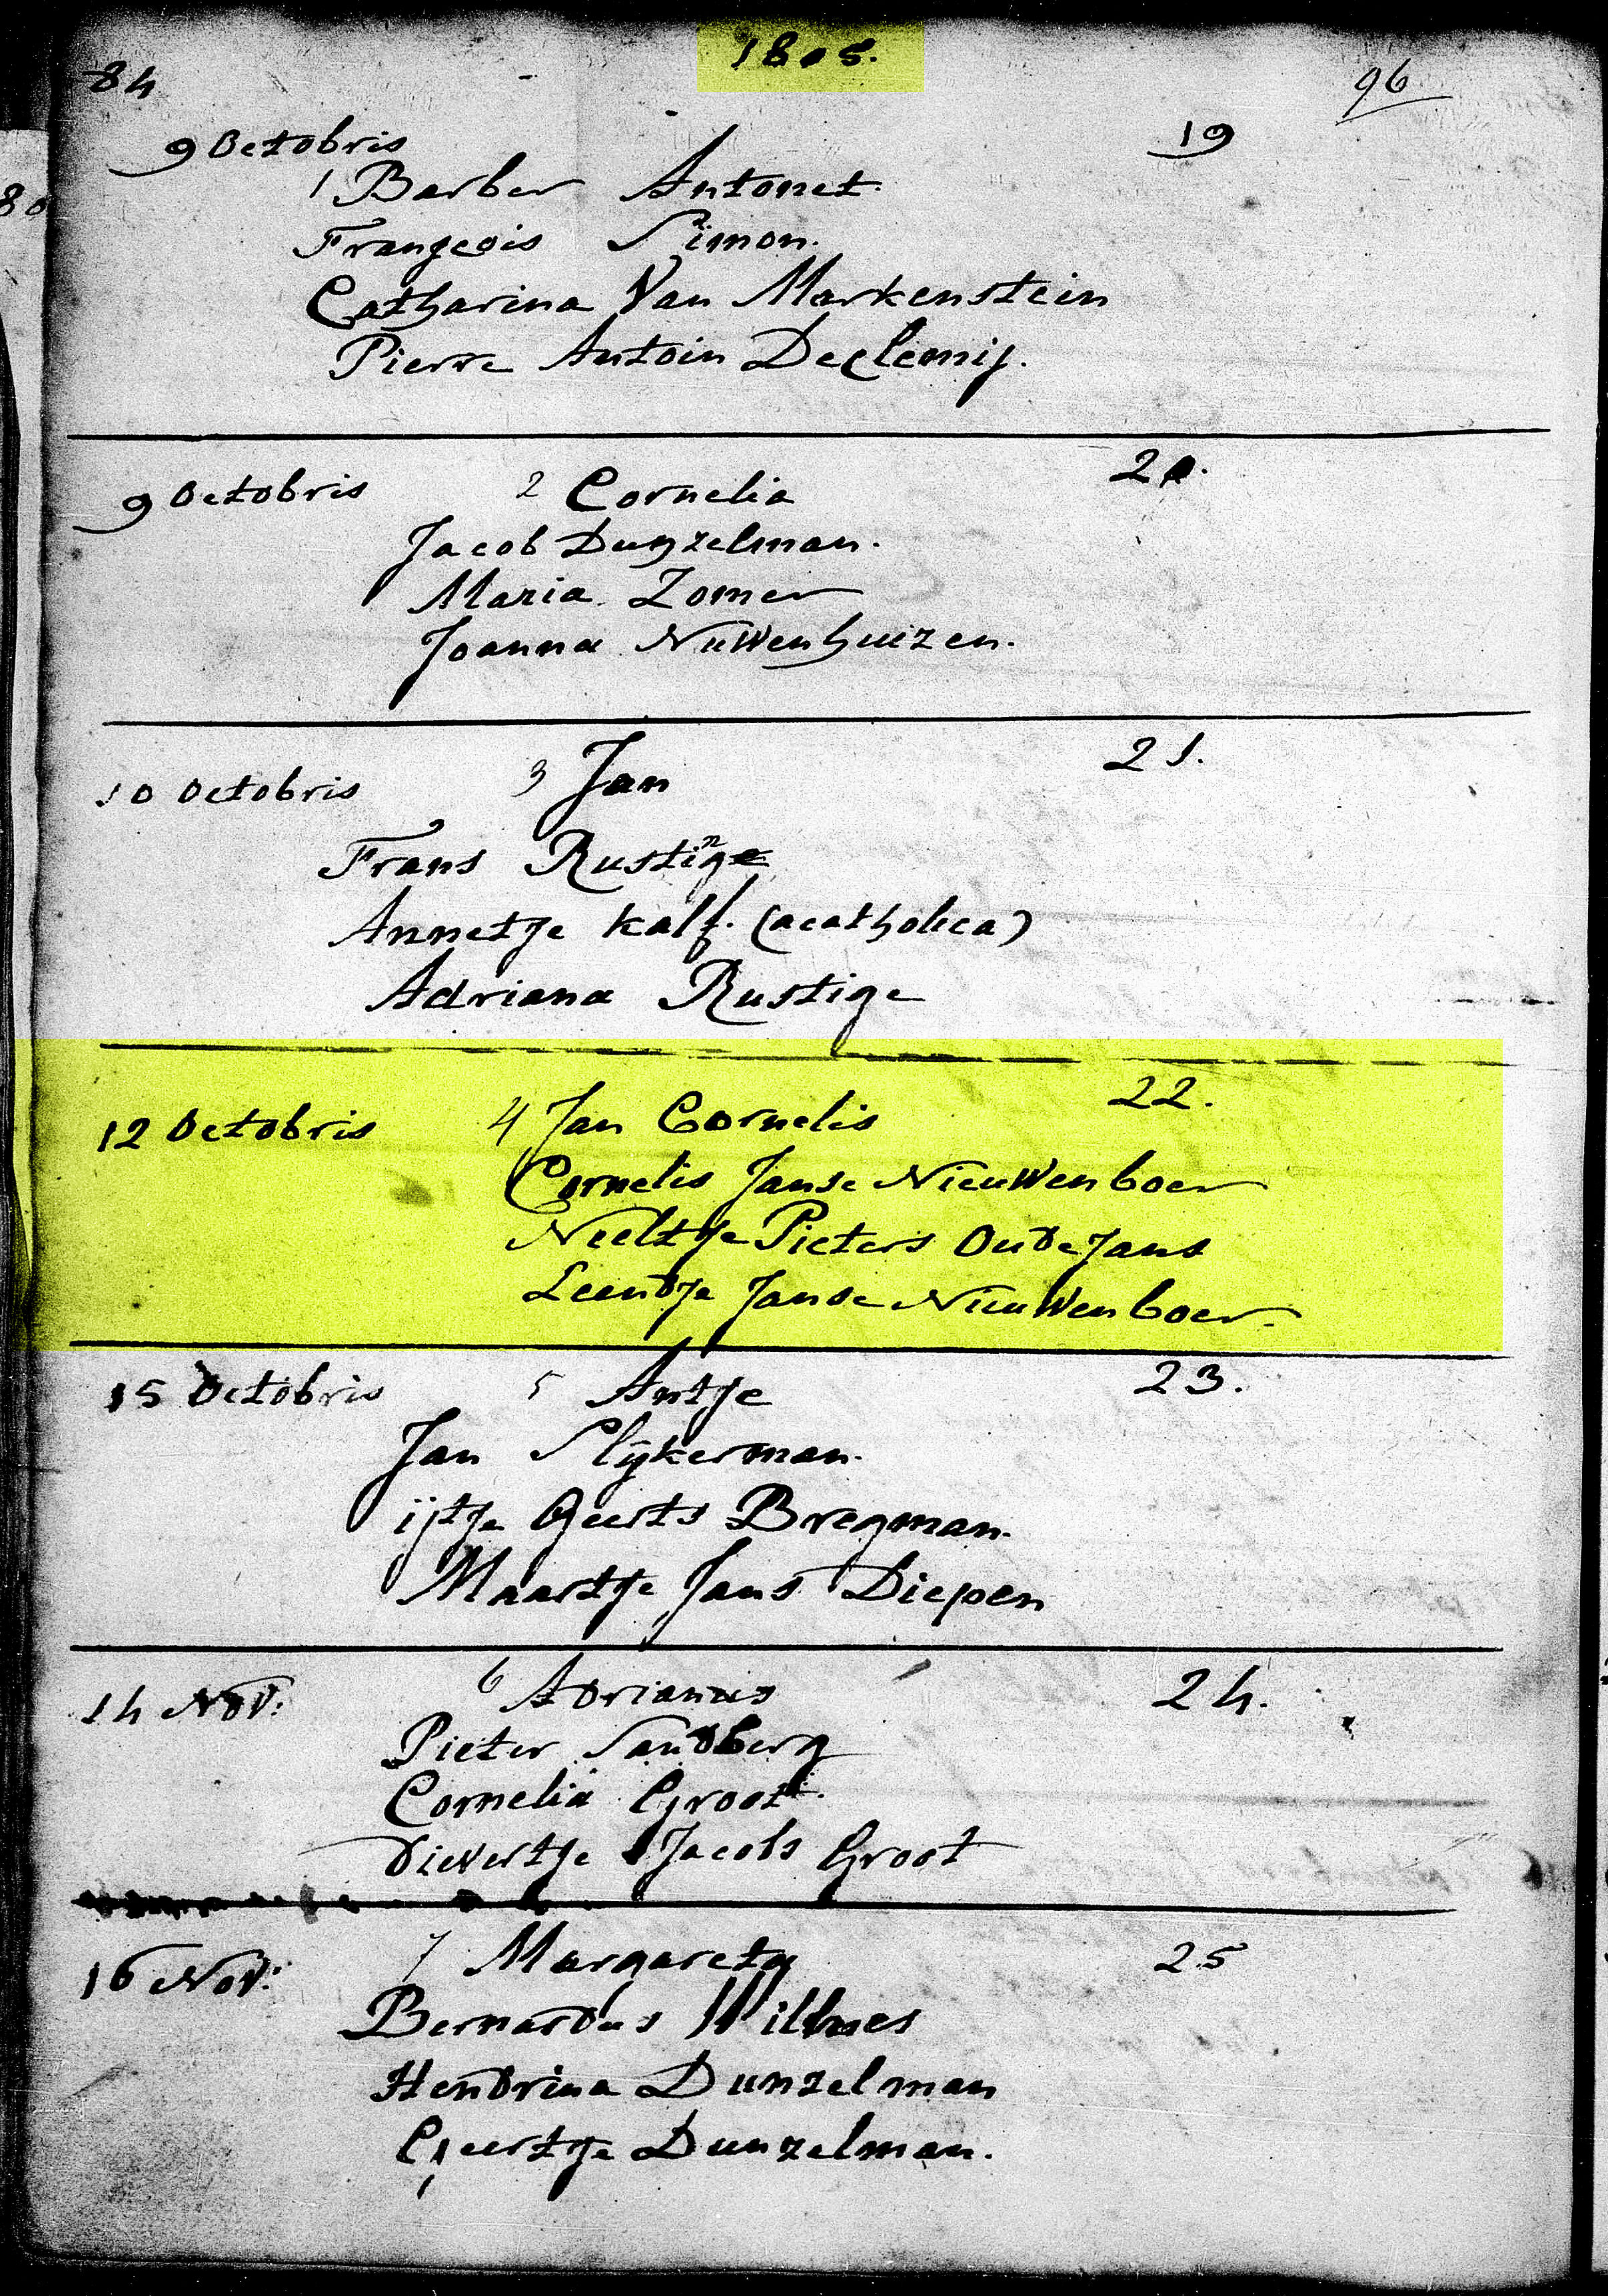 1805.
84
96
9 Octobris
19
1 Barber Antonet.
Françcois Simon.
Catharina Van Markenstein
Pierre Antoin Declemij.
80
9 Octobris 2 Cornelia
20.
Jacob Dunzelman.
Maria Zomer
Joanna Nuwenhuizen.
10 Octobris 3 Jan
21.
Frans Rustige
Annetje Kalf. (acatholica)
Adriana Rustige
12 Octobris 4 Jan Cornelis
22.
Cornelis Janse Nieuwenboer
Neeltje Pieters Oudejans
Leendje Janse Nieuwenboer.
15 Octobris 5 Antje
23.
Jan Slijkerman.
ijtje Geerts Bregman.
Maartje Jans Diepen
14 Nov: 6 Adrianus
24.
Pieter Sandberg
Cornelia Groot.
Dievertje Jacobs Groot
16 Nov: 7 Margareta
25
Bernardus Willmes
Hendrina Dunzelman
Geertje Dunzelman.